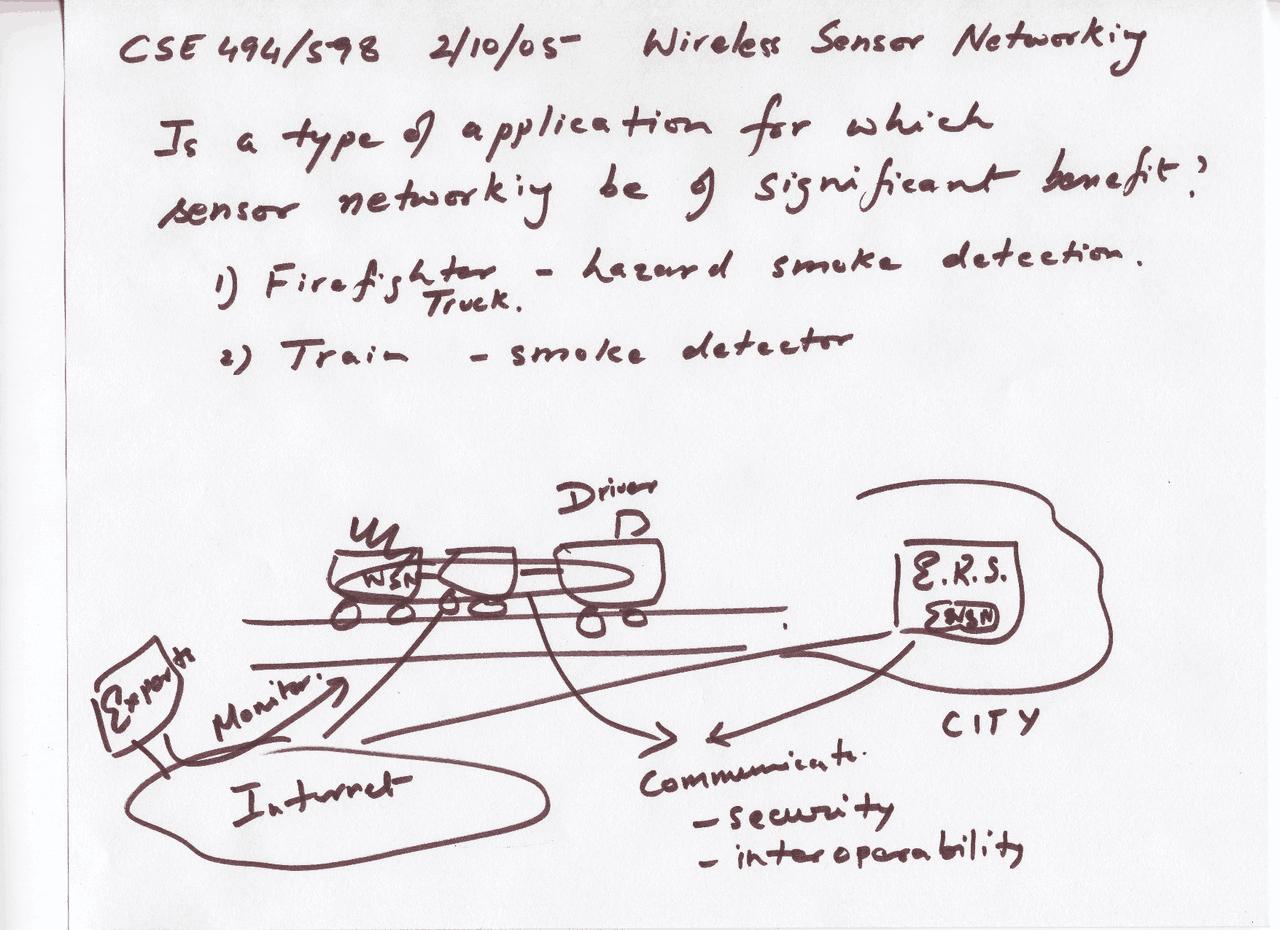 CSE 494/598 2/10/05 Wireless Sensor Networking
Is a type of application for which
sensor networking be of significant benefit?
1) Firefighter - hazard smoke detection.
Truck.
2) Train - smoke detector
Driver
D
WSN
E.R.S.
WSN
Experts
Monitor
CITY
Internet
Communicate
- security
- interoperability